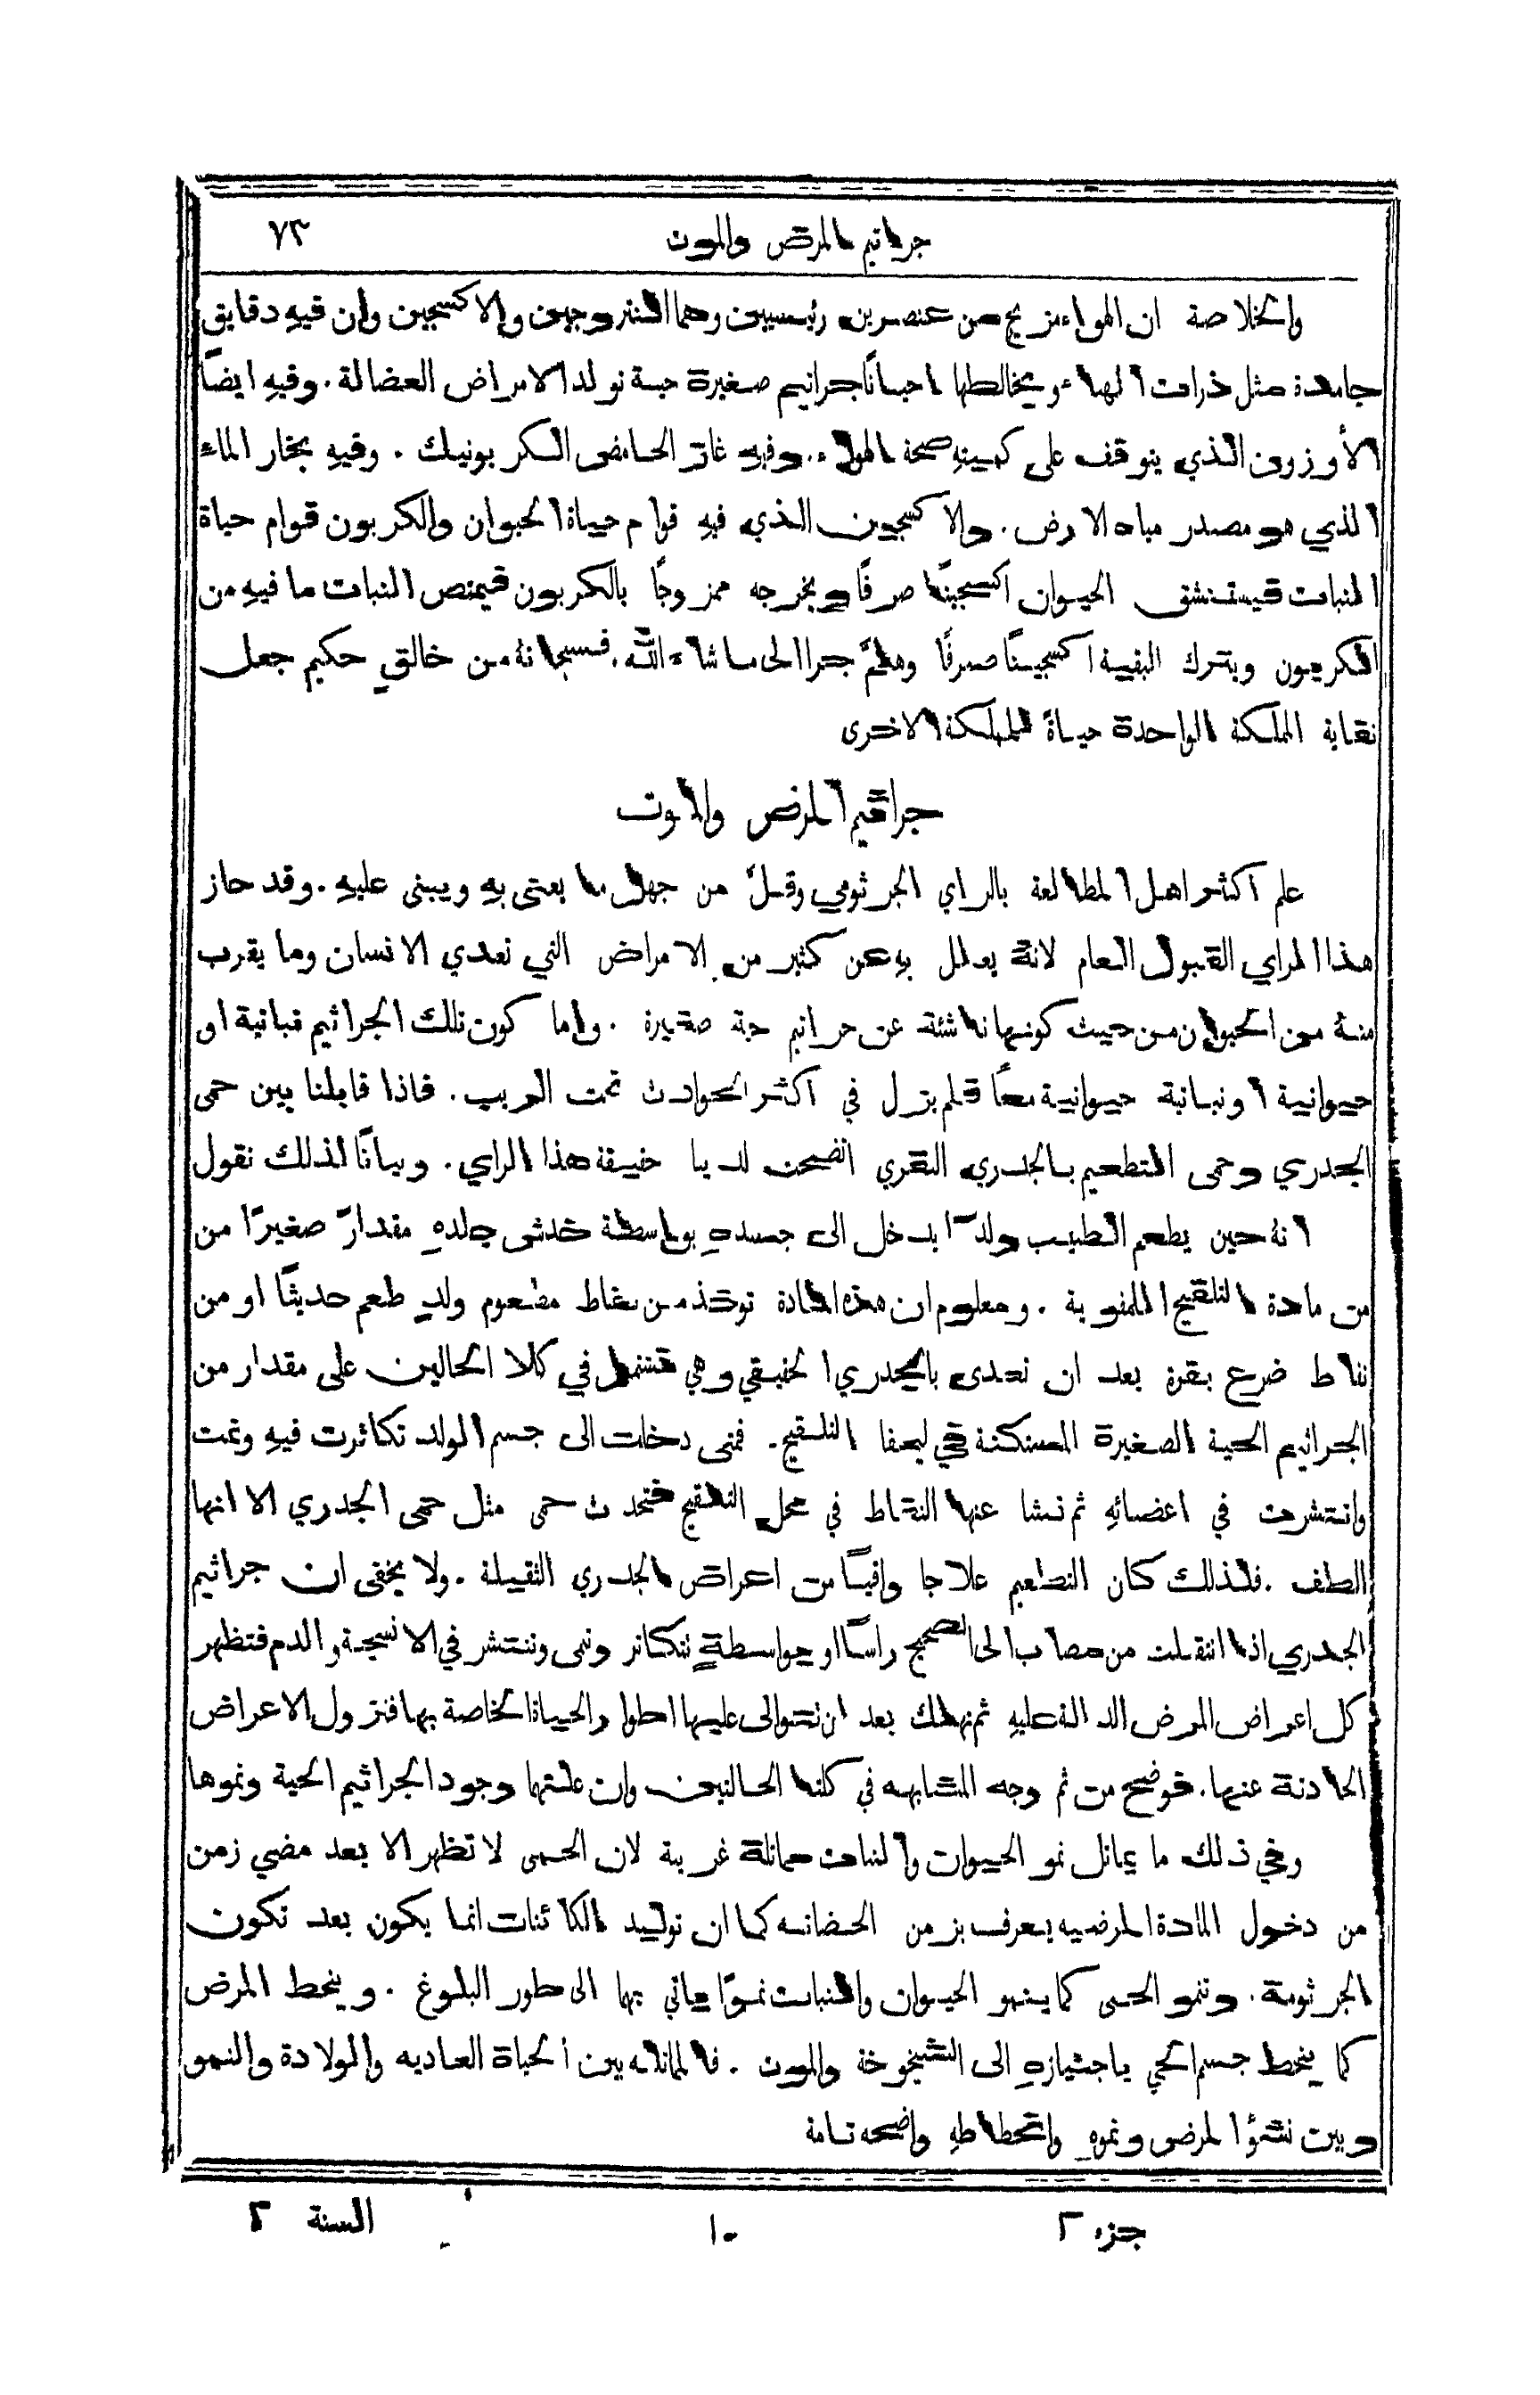 جراثيم المرض والموت ٧٣
والخلاصة ان الهواء مزيج من عنصرين رئيسيين وهما النتروجين والاكسجين وان فيهِ دقايق
جامدة مثل ذرات الهباء ويخالطها احيانًا جراثيم صغيرة حية تولد الامراض العضالة. وفيهِ ايضًا
الأوزون الذي يتوقف على كميتهِ صحة الهواء. وفيهِ غاز الحامض الكربونيك. وفيهِ بخار الماء
الذي هو مصدر مياه الارض. والاكسجين الذي فيهِ قوام حياة الحيوان والكربون قوام حياة
النبات فيستنشق الحيوان اكسجينًا صرفًا ويخرجه ممزوجًا بالكربون فيمتص النبات ما فيهِ من
الكربون ويترك البقية اكسجينًا صرفًا وهلمَّ جرا الى ما شاء الله. فسبحانهُ من خالقٍ حكيم جعل
نقاية المملكة الواحدة حياةً للمملكة الاخرى
جراثيم المرض والموت
علم اكثر اهل المطالعة بالراي الجرثومي وقلَّ من جهل ما يعتى به ويبنى عليهِ. وقد حاز
هذا الراي القبول العام لانهُ يعلل بهِ عن كثير من الامراض التي تعدي الانسان وما يقرب
منهُ من الحيوان من حيث كونها ناشئة عن جراثيم حية صغيرة. واما كون تلك الجراثيم نباتية او
حيوانية او نباتية حيوانية معًا فلم يزل في اكثر الحوادث تحت الريب. فاذا قابلنا بين حمى
الجدري وحمى التطعيم بالجدري البقري اتضحت لدينا حقيقة هذا الراي. وبيانًا لذلك نقول
انهُ حين يطعم الطبيب ولدًا يدخل الى جسدهِ بواسطة خدش جلدهِ مقدارًا صغيرًا من
من مادة التلقيح اللمفوية. ومعلوم ان هذه المادة توخذ من نقاط مطعوم ولدٍ طعم حديثًا او من
نقاط ضرع بقرة بعد ان تعدى بالجدري الحقيقي وهي تشتمل في كلا الحالين على مقدار من
الجراثيم الحية الصغيرة المستكنة في ليمفا التلقيح. فمتى دخلت الى جسم الولد تكاثرت فيهِ ونمت
وانتشرت في اعضائهِ ثم نشا عنها النقاط في محل التلقيح فتحدث حمى مثل حمى الجدري الا انها
الطف. فلذلك كان التطعيم علاجا واقيًا من اعراض الجدري الثقيلة. ولا يخفى ان جراثيم
الجدري اذا انتقلت من مصاب الى الصحيح راسًا او بواسطةٍ تتكاثر وتنمى وتنتشر في الانسجة والدم فتظهر
كل اعراض المرض الدالة عليهِ ثم تهلك بعد ان تتوالى عليها اطوار الحياة الخاصة بها فتزول الاعراض
الحادثة عنها. فوضح من ثم وجه المشابهه في كلتا الحالتين وان علتهما وجود الجراثيم الحية ونموها
وفي ذلك ما يماثل نمو الحيوان والنبات مماثلة غريبة لان الحمى لا تظهر الا بعد مضي زمن
من دخول المادة المرضيه يعرف بزمن الحضانه كما ان توليد الكائنات انما يكون بعد تكون
الجرثومة. وتنمو الحمى كما ينمو الحيوان والنبات نموًا ياتي بها الى طور البلوغ. وينحط المرض
كما ينحط جسم الحي باجتيازهِ الى الشيخوخة والموت. فالمماثله بين الحياة العاديه والولادة والنمو
وبين نشوْ المرض ونموهِ وانحطاطهِ واضحه تامة
جزء ٢ ١٠ السنة ٢